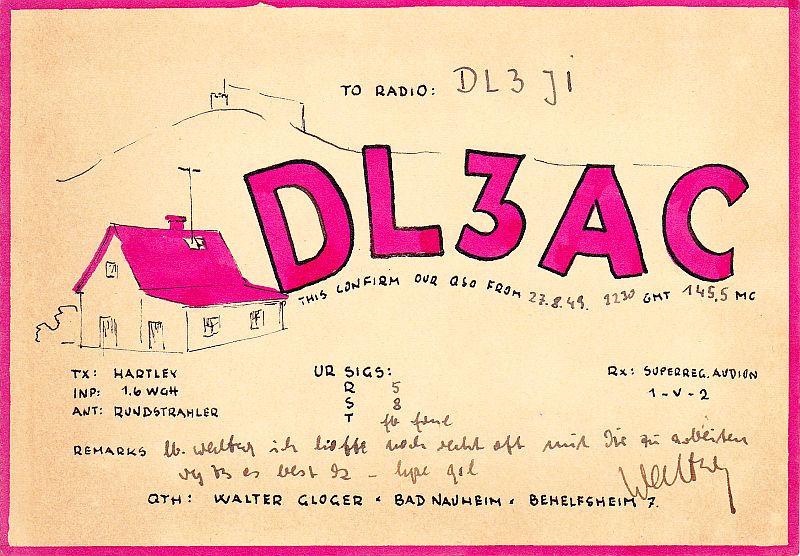 TO RADIO: DL3JI
DL3AC
THIS CONFIRM OUR QSO FROM 27.8.49. 1230 GMT 145,5 MC
TX: HARTLEY
INP: 1.6 WGH
ANT: RUNDSTRAHLER
UR SIGS:
R 5
S 8
T fb fone
RX: SUPERREG. AUDION
1-V-2
REMARKS lb. walter ich hoffe noch recht oft mit Dir zu arbeiten
vy 73 es best dx -
Walter
QTH: WALTER GLOGER · BAD NAUHEIM · BEHELFSHEIM 7.